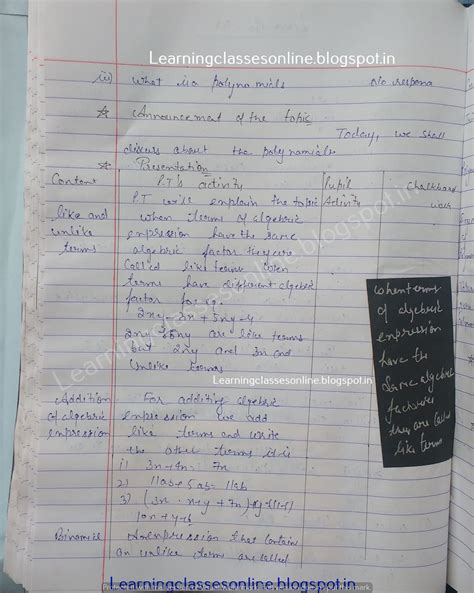 Learningclassesonline.blogspot.in
iii) What is a polynomials No respons
☆ Announcement of the topic
Today, we shall
discuss about the polynomials
☆ Presentation
Content P.T's activity Pupil Activity Chalkboard work
like and unlike terms
P.T will explain the topic
when terms of algebric
expression have the same
algebric factor they are
called like terms when
terms have different algebric
factor for eg.
2xy-3x+5xy-4
2xy 5xy are like terms
but 2xy and 3x and
Unlike terms
when terms
of algebric
expression
have the
same algebric
factories
they are called
like terms
Learningclassesonline.blogspot.in
Learningclassesonline.blogspot.in
Addition of algebric expression
For additing algebric
expression we add
like terms and write
the other terms it is
1) 3x+4x= 7x
2) 11ab+5ab= 11ab
3)
10x+y-6
Binamial An expression that contain
an unlike terms are called
Learningclassesonline.blogspot.in